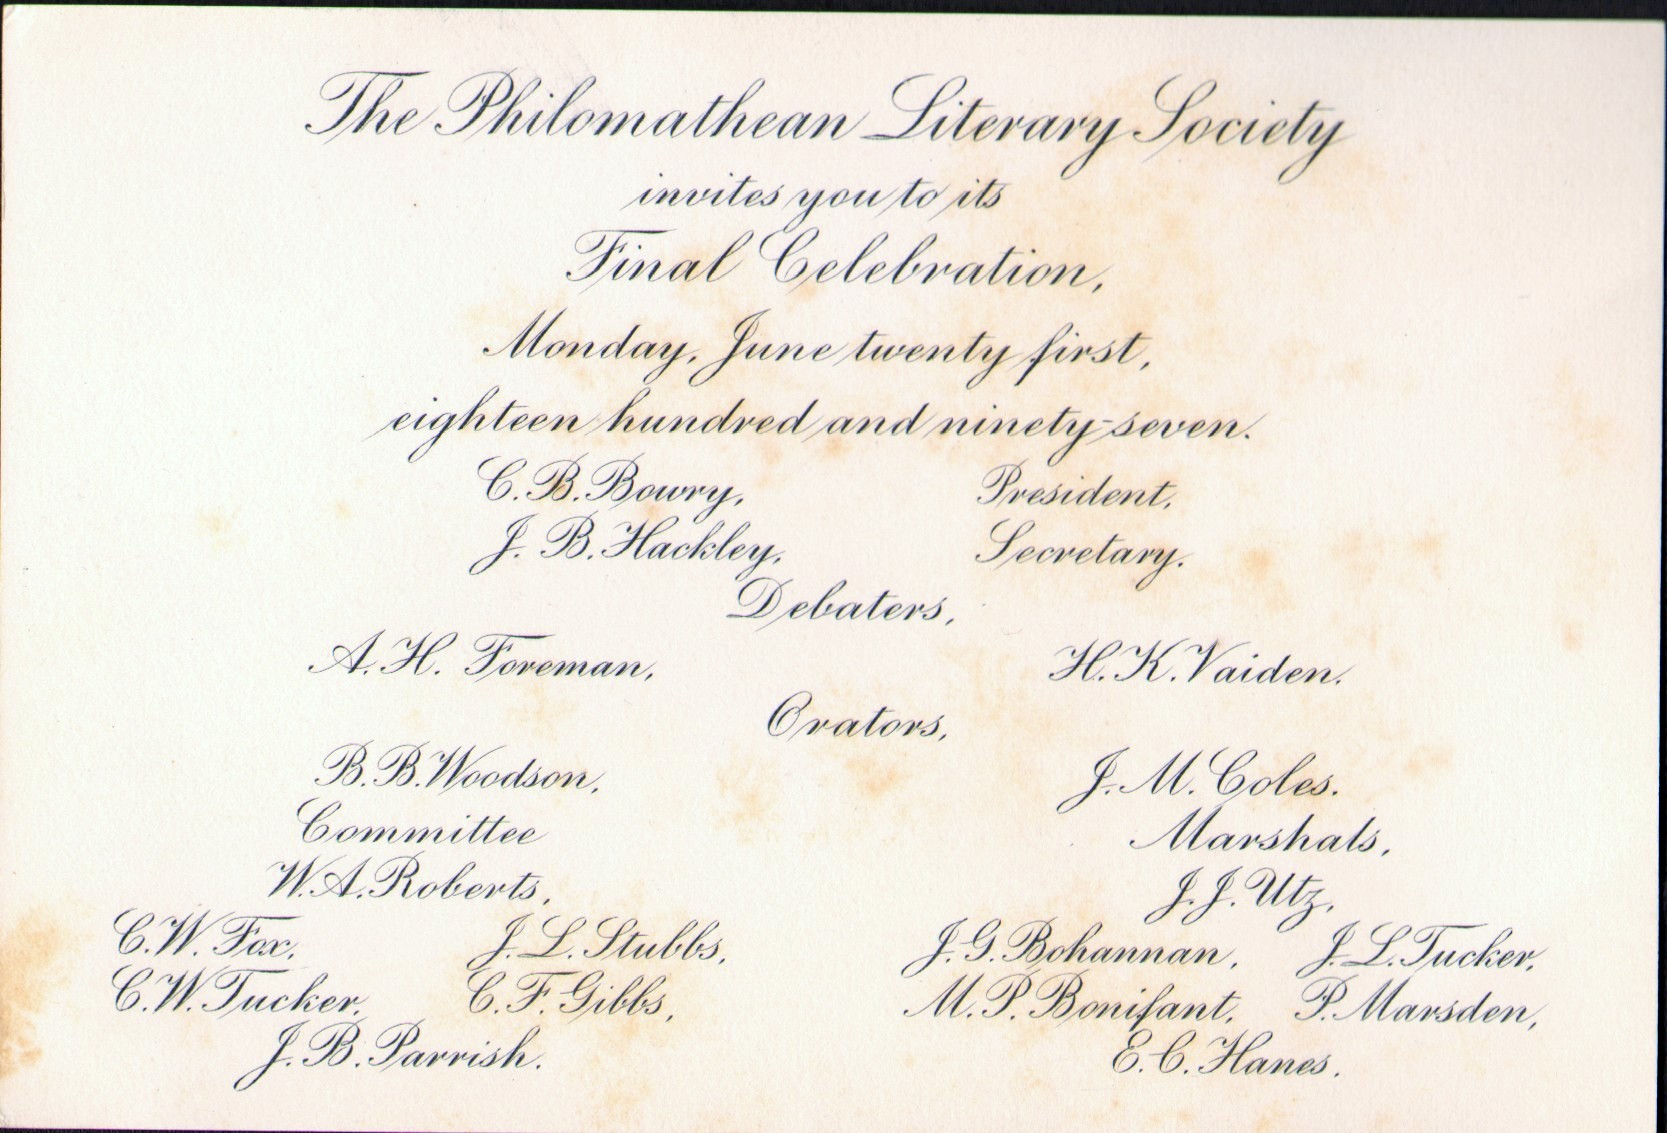 The Philomathean Literary Society
invites you to its
Final Celebration,
Monday, June twenty first,
eighteen hundred and ninety-seven.
C. B. Bowry, President,
J. B. Hackley, Secretary.
Debaters,
A. H. Foreman, H. K. Vaiden.
Orators,
B. B. Woodson, J. M. Coles.
Committee Marshals,
W. A. Roberts, J. J. Utz,
C. W. Fox, J. L. Stubbs, J. G. Bohannan, J. L. Tucker,
C. W. Tucker, C. F. Gibbs, M. P. Bonifant, P. Marsden,
J. B. Parrish. E. C. Hanes.